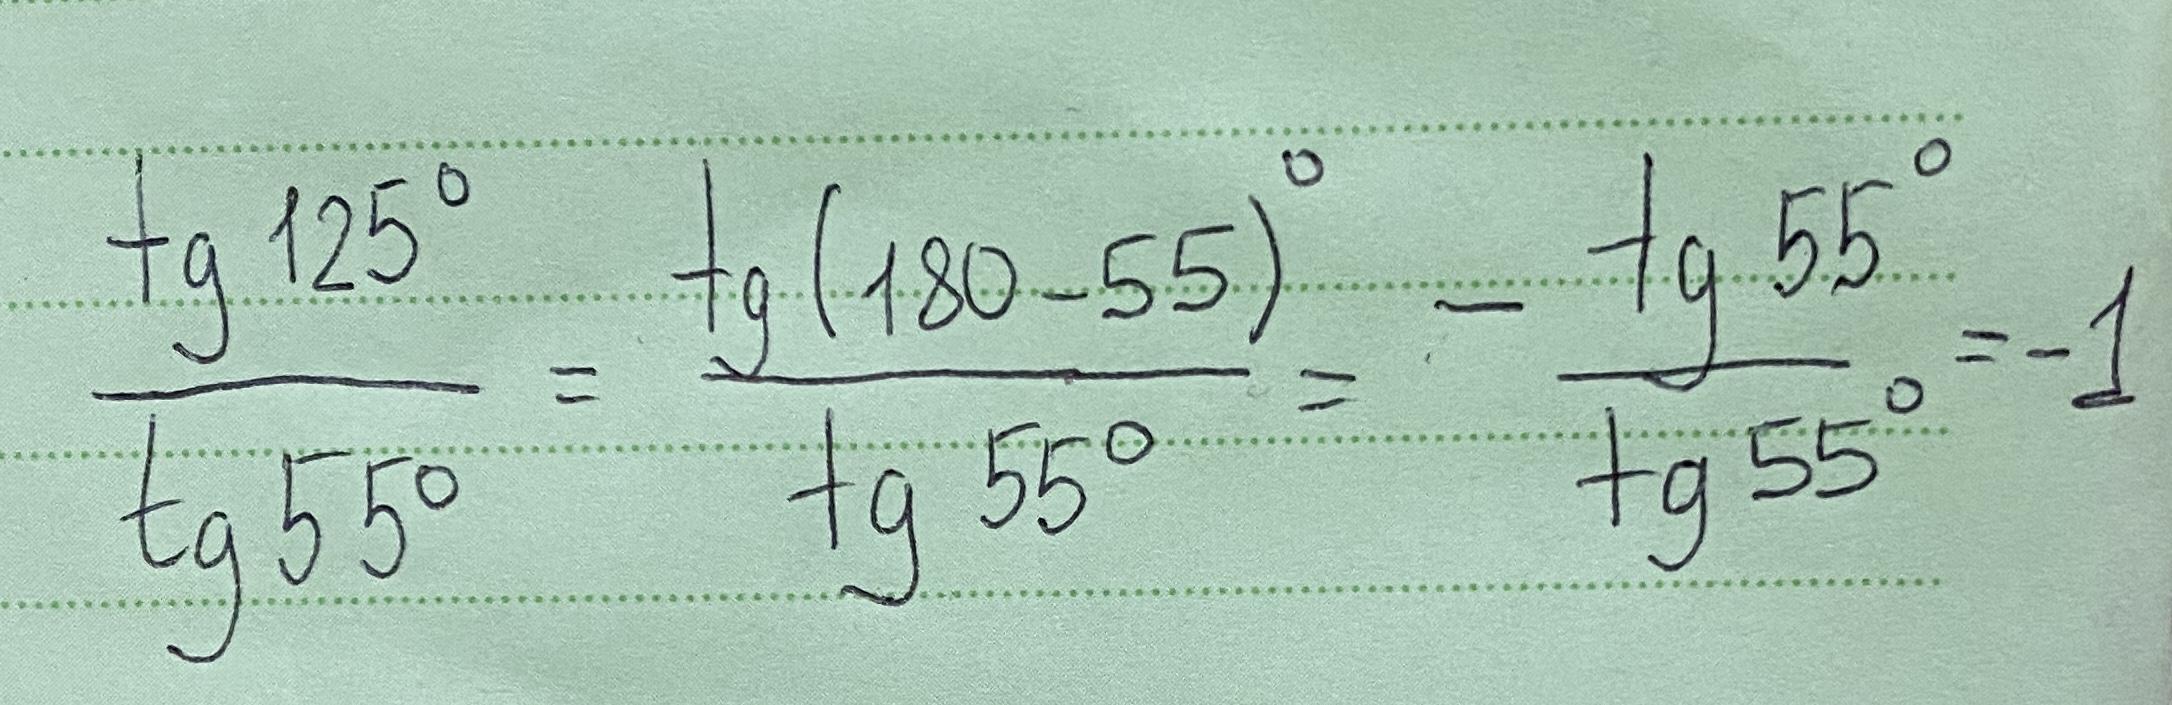 tg 125° / tg 55° = tg (180-55)° / tg 55° = - tg 55° / tg 55° = -1